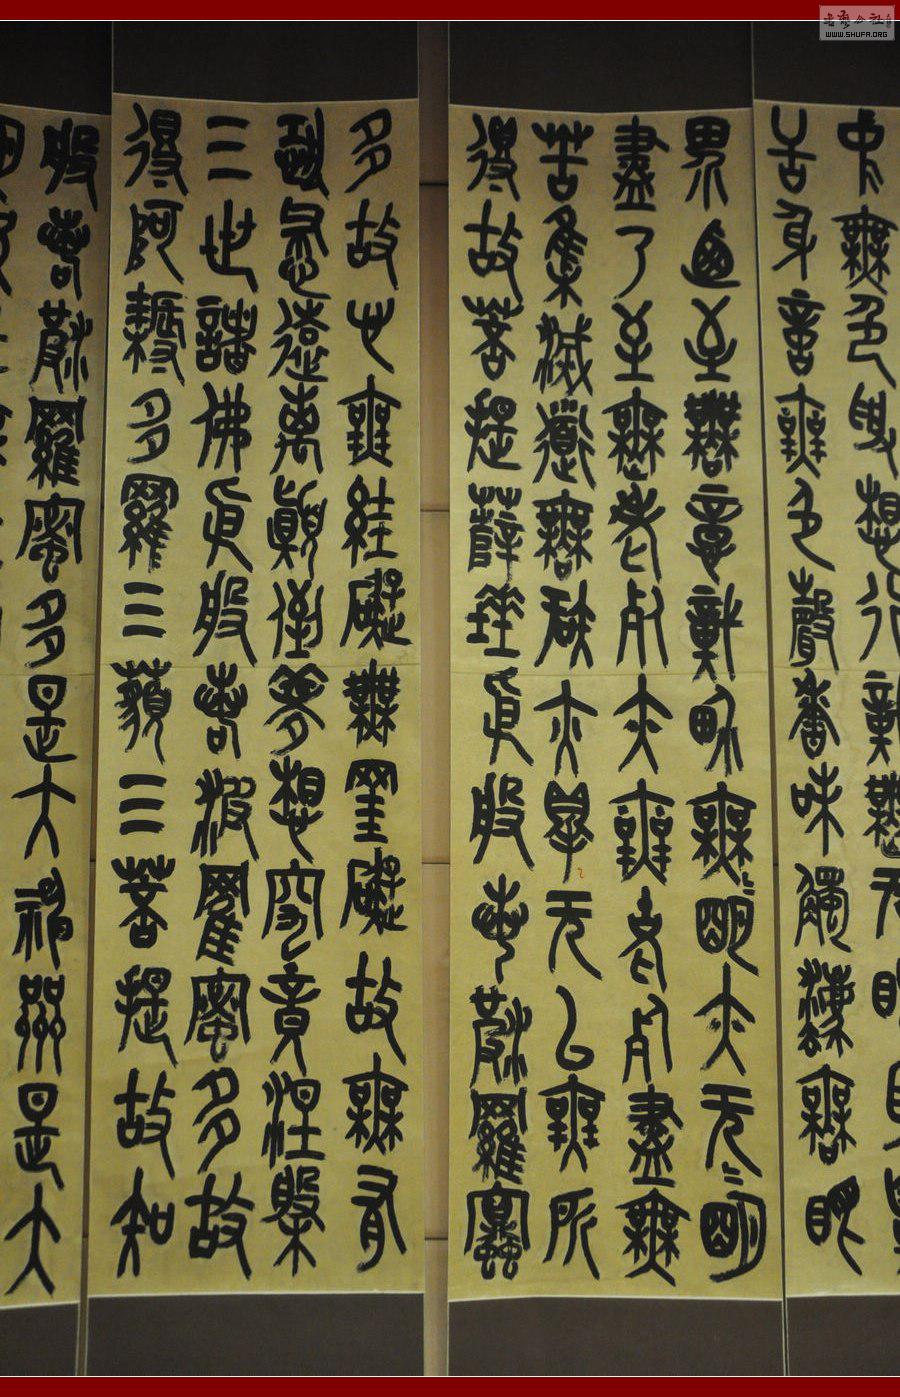 中無色受想行識無眼耳鼻
舌身意無色聲香味觸法無眼
界乃至無意識界無〻明亦无〻明
盡乃至無老死亦無老死盡無
苦集滅道無智亦得无以無所
得故菩提薩埵依般若波羅蜜
多故心無罣礙無罣礙故無有
恐怖遠離顛倒夢想究竟涅槃
三世諸佛依般若波羅蜜多故
得阿耨多羅三藐三菩提故知
般若波羅蜜多是大神咒是大
WWW.SHUFA.ORG